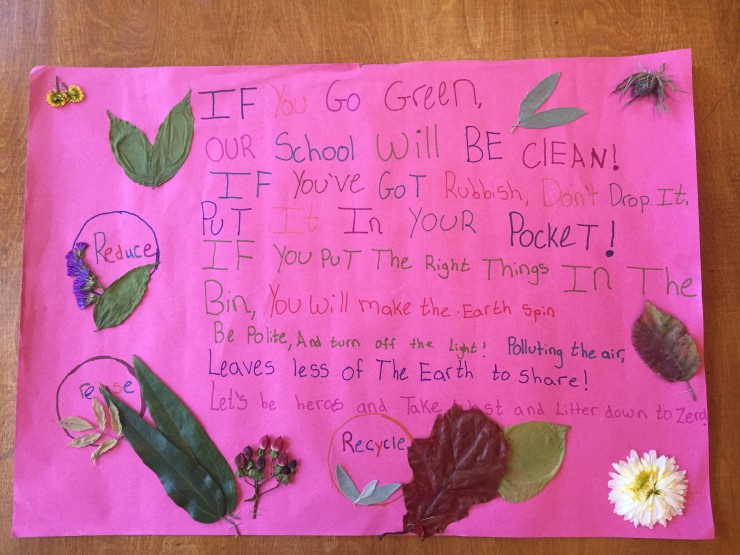 IF You Go Green,
OUR School Will BE ClEAN!
IF You've GoT Rubbish, Don't Drop It.
PuT It In YOUR PockeT!
IF You PuT The Right Things In The
Bin, You Will make the Earth Spin
Be Polite, And turn off the Light! Polluting the air,
Leaves less of The Earth to share!
Let's be heros and Take Wast and Litter down to Zero
Reduce
Recycle